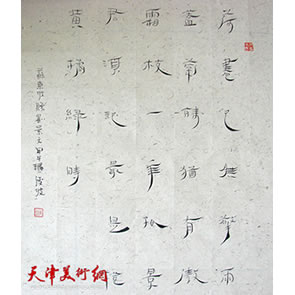 荷盡已無擎雨
蓋菊殘猶有傲
霜枝一年好景
君須記最是橙
黃橘綠時
蘇東坡贈劉景文
天津美術網